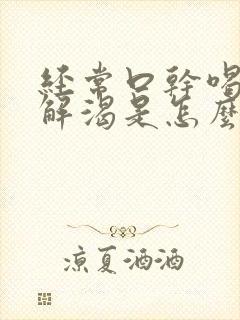 經常口幹喝
解渴是怎麼
涼夏酒酒